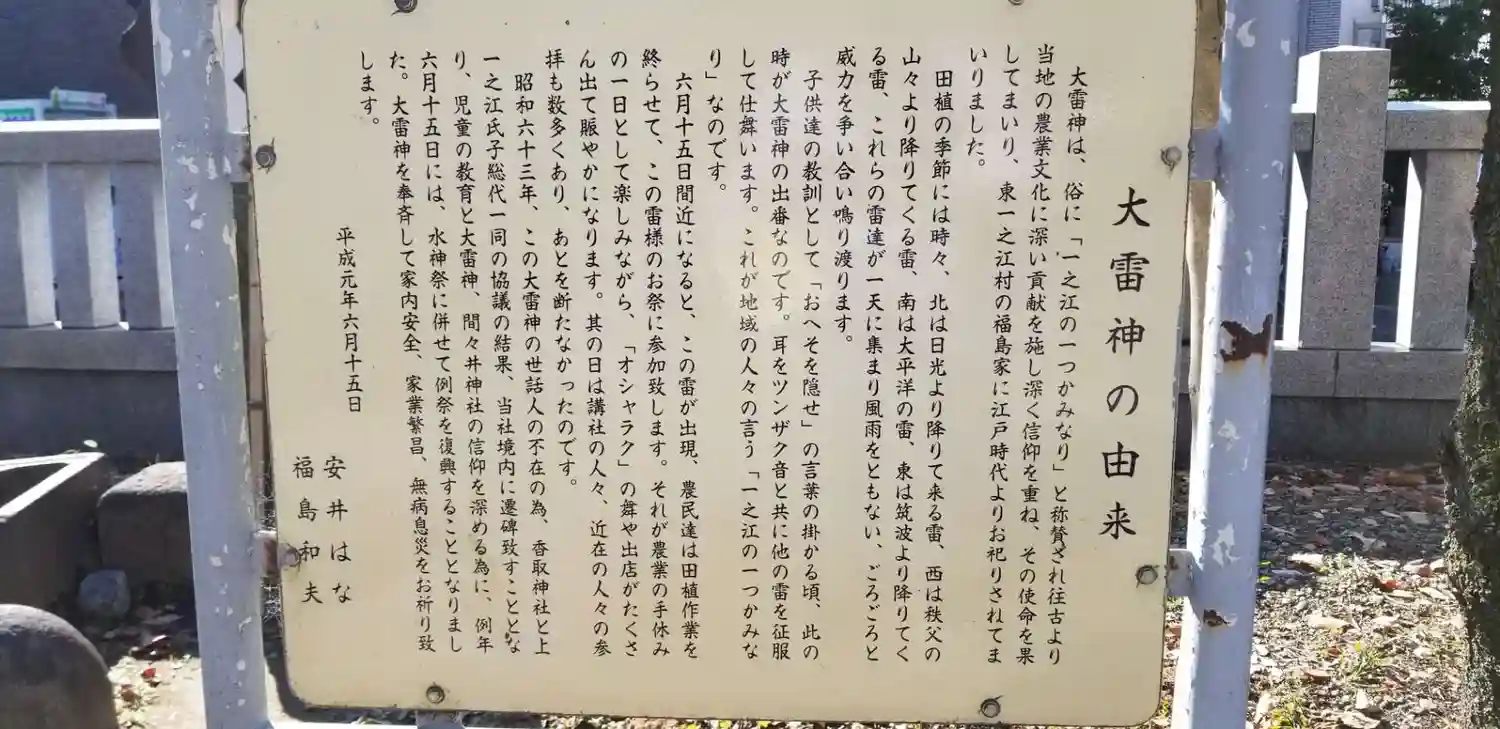 大雷神の由来
大雷神は、俗に「一之江の一つかみなり」と称賛され往古より
当地の農業文化に深い貢献を施し深く信仰を重ね、その使命を果
してまいり、東一之江村の福島家に江戸時代よりお祀りされてま
いりました。
田植の季節には時々、北は日光より降りて来る雷、西は秩父の
山々より降りてくる雷、南は大平洋の雷、東は筑波より降りてく
る雷、これらの雷達が一天に集まり風雨をともない、ごろごろと
威力を争い合い鳴り渡ります。
子供達の教訓として「おへそを隠せ」の言葉の掛かる頃、此の
時が大雷神の出番なのです。耳をツンザク音と共に他の雷を征服
して仕舞います。これが地域の人々の言う「一之江の一つかみな
り」なのです。
六月十五日間近になると、この雷が出現、農民達は田植作業を
終らせて、この雷様のお祭に参加致します。それが農業の手休み
の一日として楽しみながら、「オシャラク」の舞や出店がたくさ
ん出て賑やかになります。其の日は講社の人々、近在の人々の参
拝も数多くあり、あとを断たなかったのです。
昭和六十三年、この大雷神の世話人の不在の為、香取神社と上
一之江氏子総代一同の協議の結果、当社境内に遷碑致すこととな
り、児童の教育と大雷神、間々井神社の信仰を深める為に、例年
六月十五日には、水神祭に併せて例祭を復興することとなりまし
た。大雷神を奉斉して家内安全、家業繁昌、無病息災をお祈り致
します。
平成元年六月十五日
安井はな
福島和夫